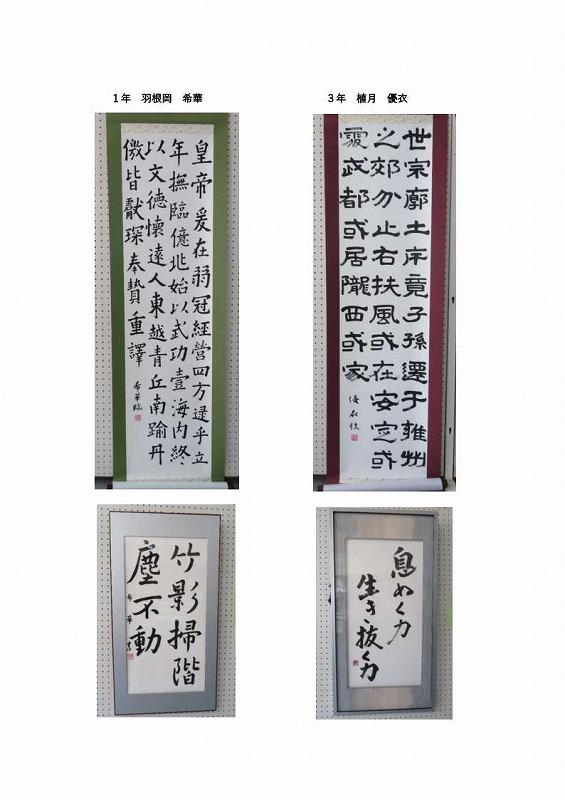 1年　羽根岡　希華
皇帝爰在弱冠經營四方逮乎立
年撫臨億兆始以武功壹海内終
以文德懷遠人東越青丘南踰丹
徼皆獻琛奉贄重譯
希華臨
竹影掃階
塵不動
希華
3年　植月　優衣
世宗廓土斥竟子孫遷于雍州
之郊分止右扶風或在安定或
處武都或居隴西或家
優衣臨
息ぬく力
生き抜く力